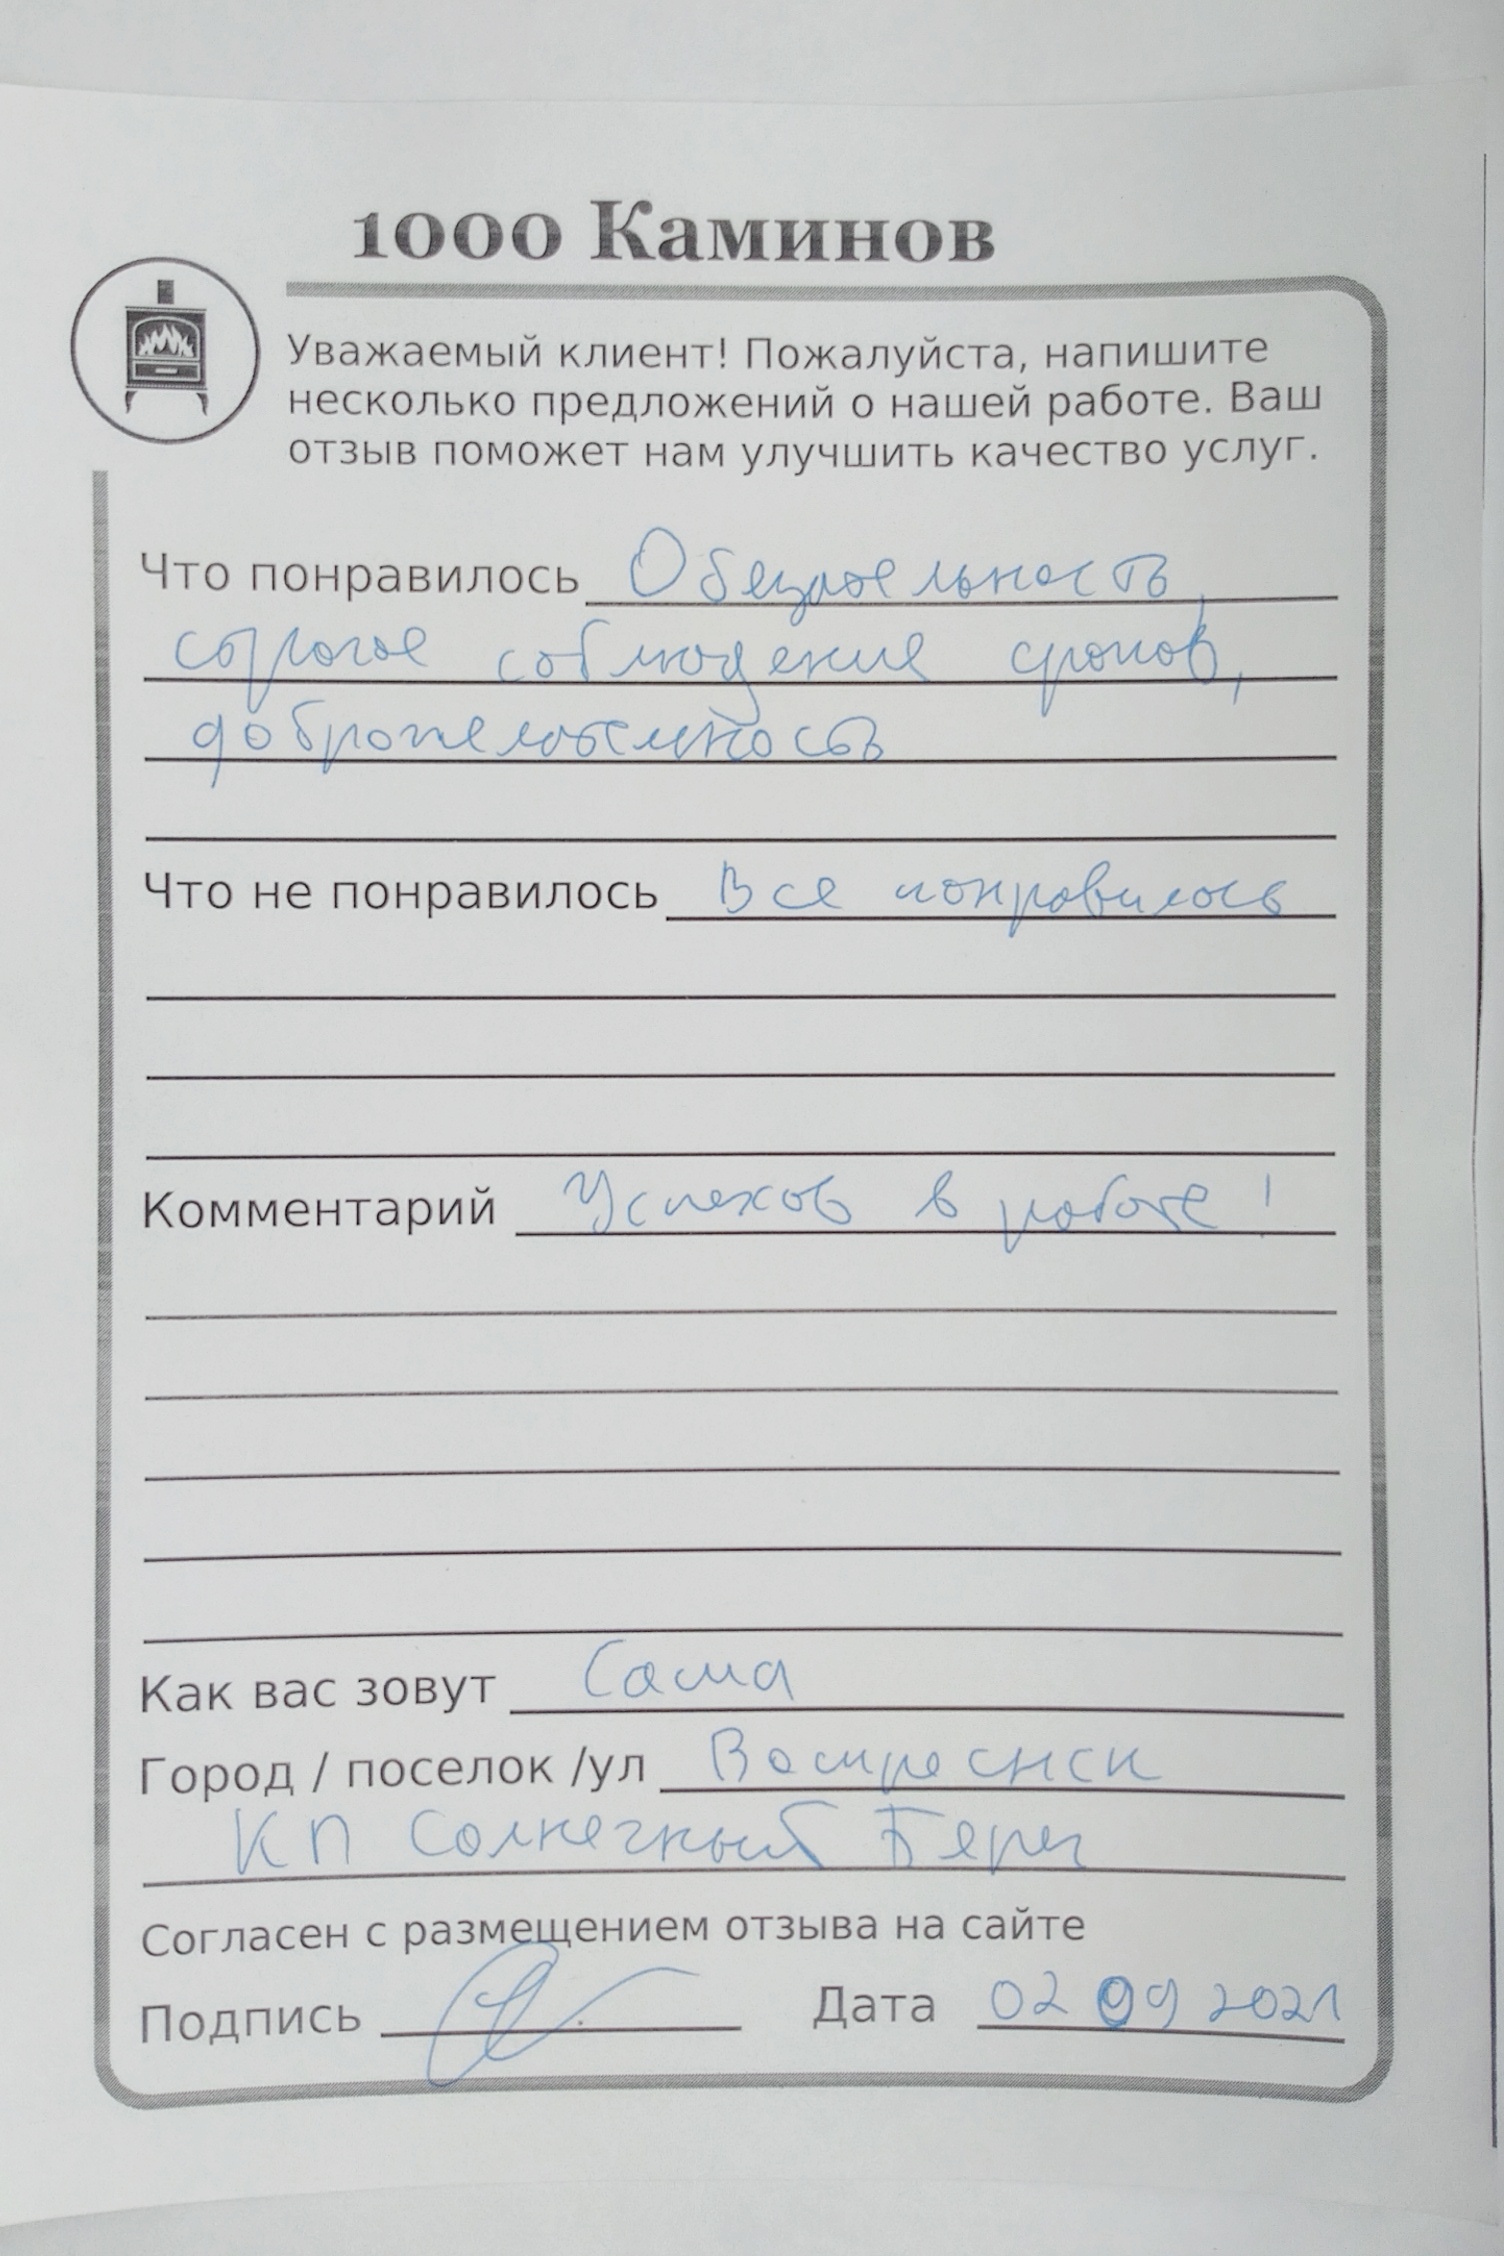 1000 Каминов
Уважаемый клиент! Пожалуйста, напишите
несколько предложений о нашей работе. Ваш
отзыв поможет нам улучшить качество услуг.
Что понравилось Обязательность,
строгое соблюдение сроков,
доброжелательность
Что не понравилось Все понравилось
Комментарий Успехов в работе!
Как вас зовут Саша
Город / поселок /ул Воскресенск
КП Солнечный Берег
Согласен с размещением отзыва на сайте
Подпись Дата 02 09 2021